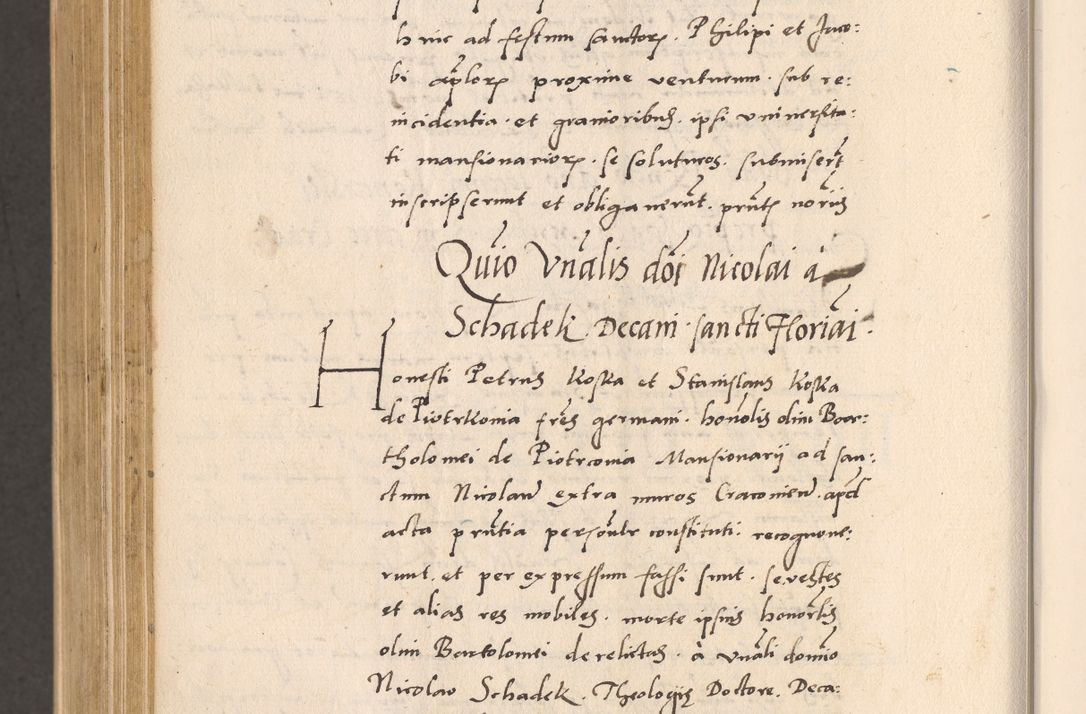 hinc ad festum sanctorꝝ. Philipi et Jaco:
bi aplorꝝ proxime venturum. sub re:
incidentia. et gravioribus. ipsi universita:
ti mansionariorꝝ. se soluturos. submiserūt
inscripserunt et obligaverūt. prntꝭ noriis
Quio Vnalis doi Nicolai à
Schadek. Decani. sancti Floriai.
Honesti Petrus Koska et Stanislaus Koska
de Piotrkovia fres germani. honolis olim Bar:
tholomei de Piotrcovia Mansionarij ad san:
ctum Nicolaum extra muros Cracovien. apud
acta prntia personlr constituti. recognove:
runt. et per expressum fassi sunt. se vestes
et alias res mobiles. morte ipsius honorlis
olim Bartolomei derelictas. à Vnali domio
Nicolao Schadek. Theologię Doctore. Deca: